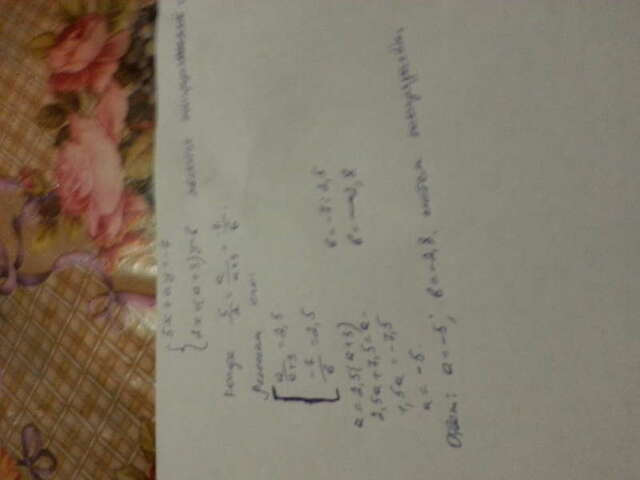 5x + ay = -7
2x + (a+3)y = в
Когда 5/2 = a/a+3 = 7/в.
Решаем
a/a+3 = 2,5
-7/в = 2,5
a = 2,5(a+3) в = -7 : 2,5
2,5a + 7,5 = a в = -2,8
1,5a = -7,5
a = -5
Ответ: a = -5; в = -2,8.